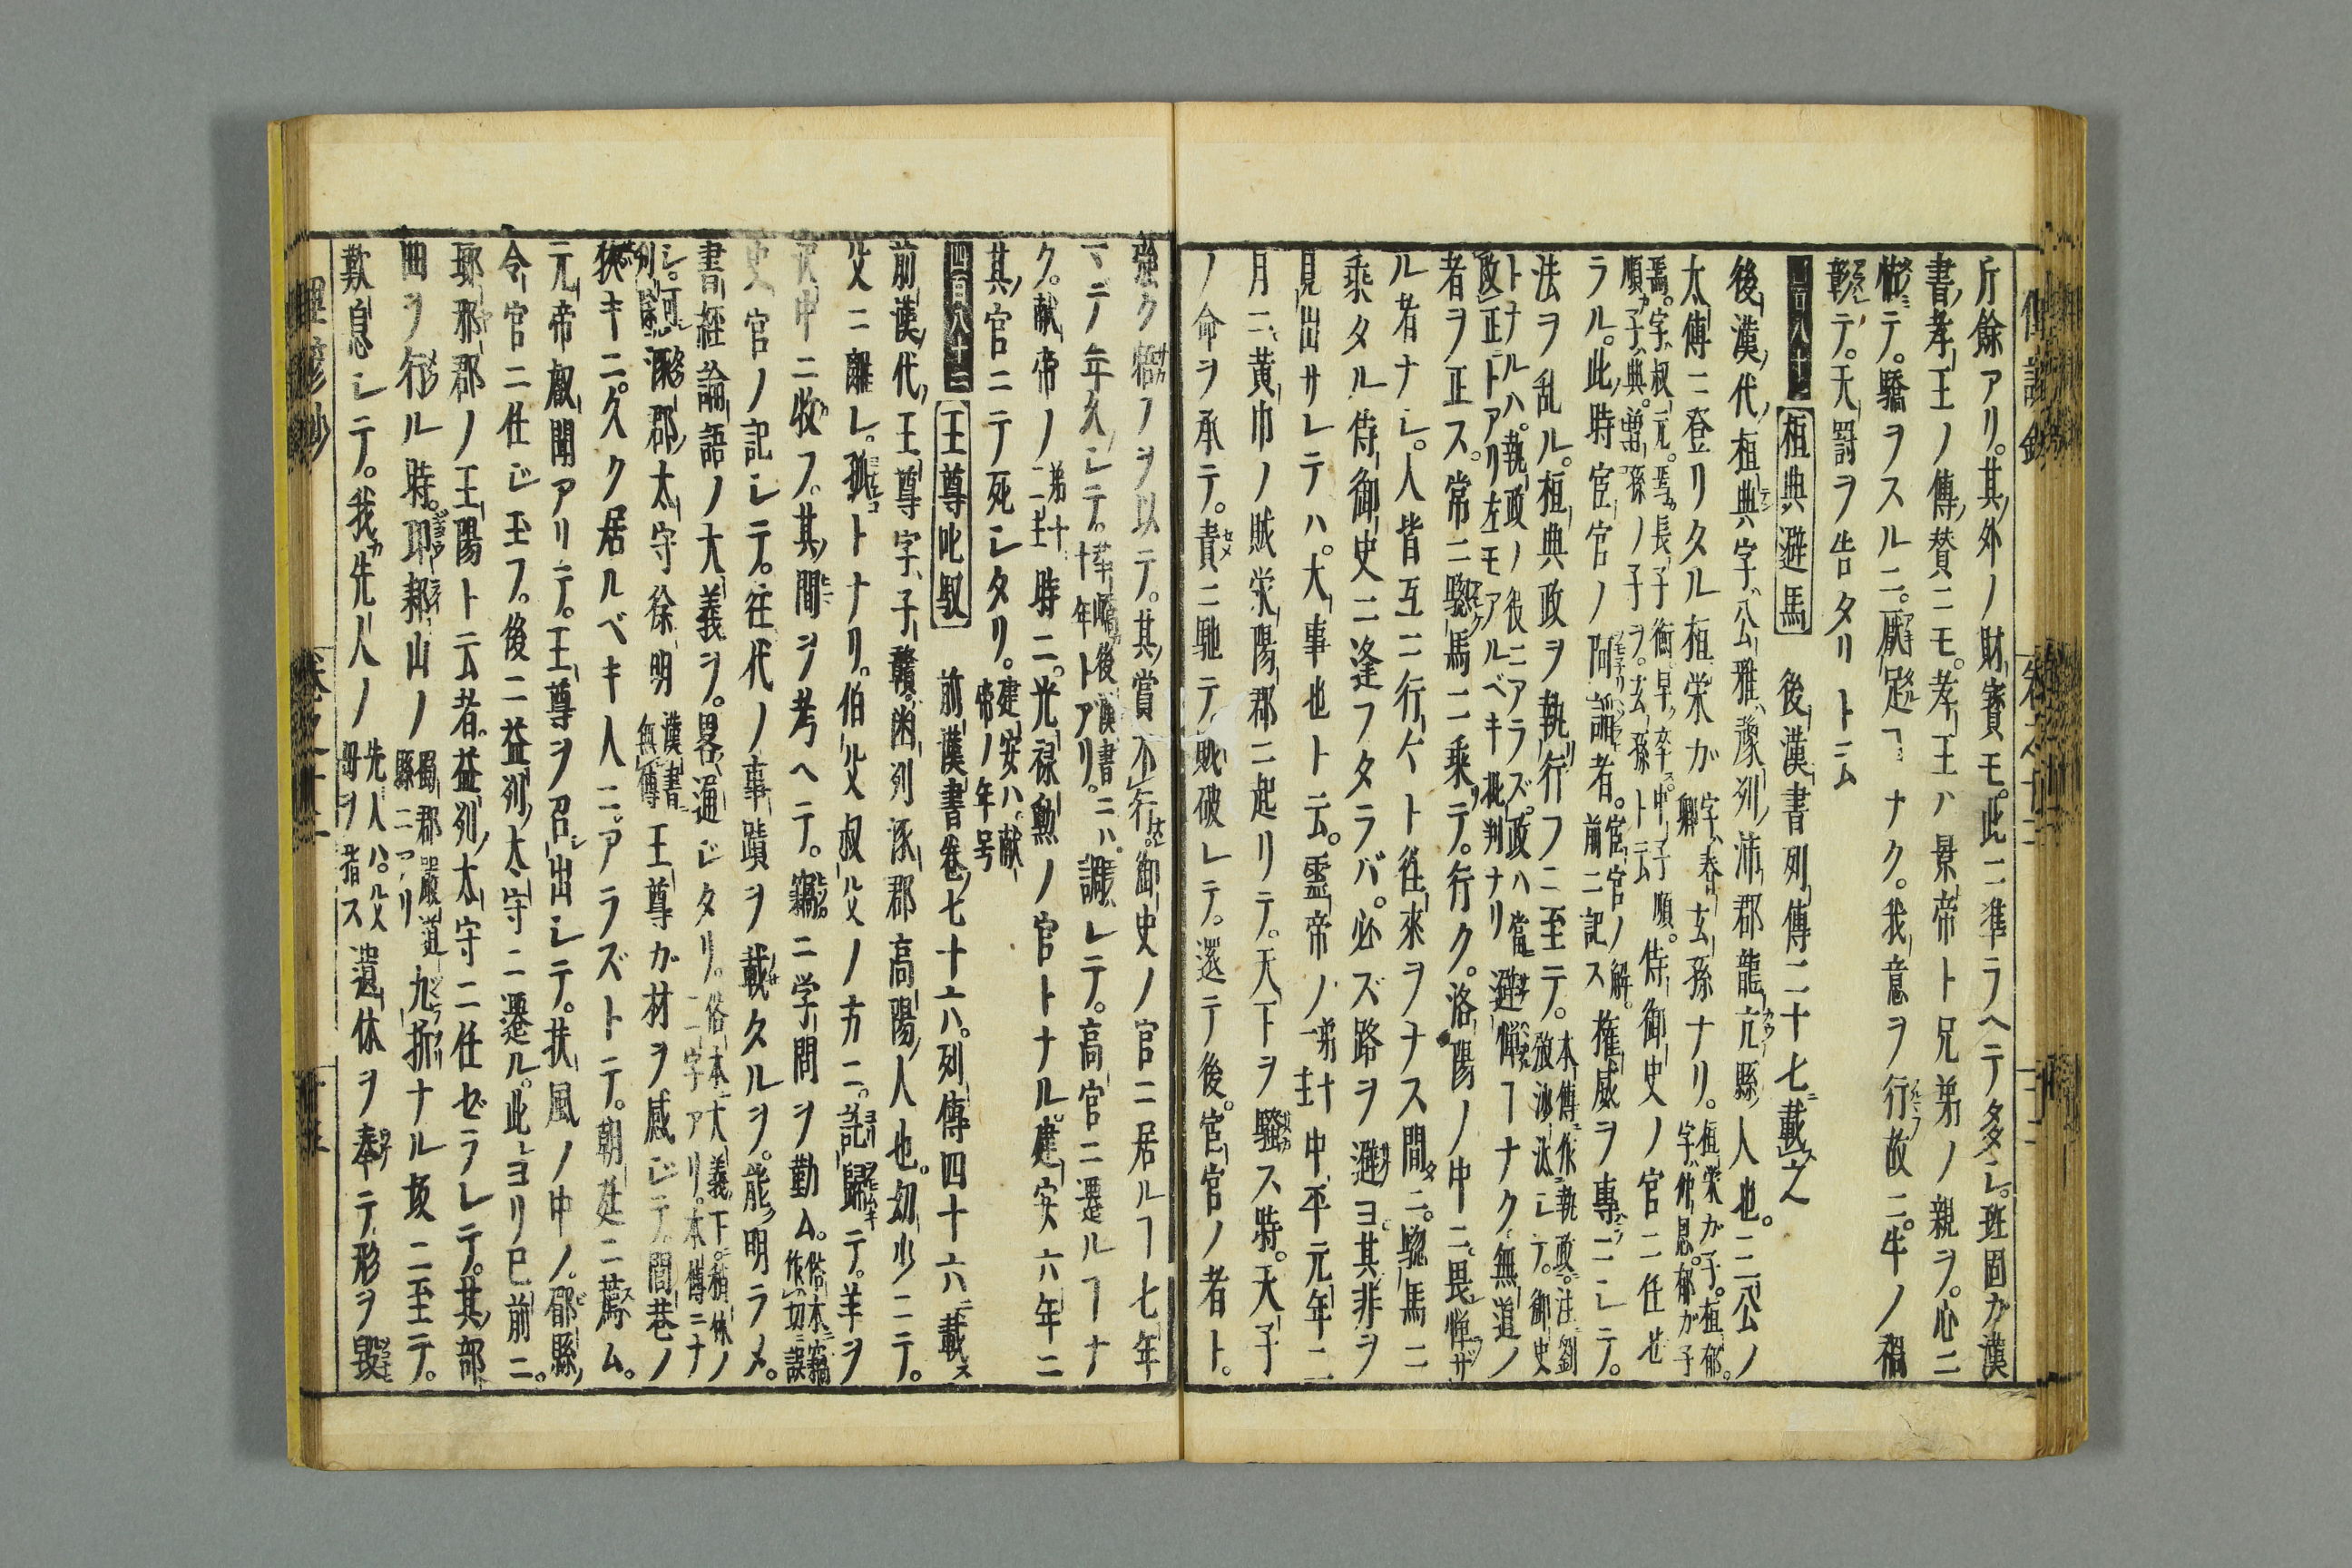 斤餘アリ。其外ノ財寳モ。此ニ準ラヘテ多シ。班固ガ漢
書孝王ノ傳賛ニモ。孝王ハ景帝ト兄弟ノ親ヲ。心ニ
恃テ。驕ヲスルニ。厭足ヿナク。我意ヲ行故ニ。牛ノ禍
彰テ。天罸ヲ告タリト云
四百八十一 桓典避馬 後漢書列傳二十七載之
後漢ノ代桓典字ハ公雅豫州沛郡龍亢縣ノ人也。三公ノ
太傅ニ登リタル桓栄ガ字ハ春卿玄孫ナリ。桓栄ガ子。桓郁。字ハ仲恩。郁ガ子
焉。字ハ叔元。焉ガ長子衡早ク卒ス。中子順。順ガ子ハ典。曽孫ノ子ヲ。玄孫ト云侍御史ノ官ニ任セ
ラル。此時宦官ノ阿謟者。宦官ノ解。前ニ記ス権威ヲ専ニシテ。
法ヲ乱ル。桓典政ヲ執行フニ至テ。本傳作執政。注劉攽決シテ。御史
トナルハ。執政ノ役ニアラズ。政ハ當政正トアリ左モアルベキ批判ナリ避憚ヿナク無道ノ
者ヲ正ス。常ニ驄馬ニ乗テ。行ク。洛陽ノ中ニ畏憚ザ
ル者ナシ。人皆互ニ行々ト往来ヲナス間ニ。驄馬ニ
乗タル侍御史ニ逢フタラバ。必ズ路ヲ避ヨ。其非ヲ
見出サレテハ。大事也ト云。霊帝ノ第十一主中平元年二
月ニ黄巾ノ賊栄陽郡ニ起リテ。天下ヲ騒ス時。天子
ノ命ヲ承テ。責ニ馳テ賊破レテ。還テ後。宦官ノ者ト。
強ク啎フヲ以テ。其賞不行。御史ノ官ニ居ルヿ七年
マデノ年久シテ。後漢書ニハ。十年トアリ。調レテ。高官ニ遷ルヿナ
ク。献帝ノ第十二主時ニ。光禄勲ノ官トナル。建安六年ニ
其官ニテ死シタリ。建安ハ。献帝ノ年号
四百八十二 王尊叱馭 前漢書巻七十六。列傳四十六ニ載ス
前漢ノ代王尊字ハ子贛。幽州涿郡高陽ノ人也。幼少ニテ。
父ニ離レ。孤トナリ。伯父叔父ノ方ニ。託歸テ。羊ヲ
沢中ニ牧フ。其間ヲ考ヘテ。竊ニ学問ヲ勤ム。俗本竊作切誤
史官ノ記シテ。往代ノ事蹟ヲ載タルヲ。能明ラメ。
書経論語ノ大義ヲ。畧通ジタリ。俗本大義下。稍休ノ二字アリ。本傳ニナ
シ。可除涿郡ノ太守徐明漢書無傳王尊ガ材ヲ感ジテ。閭巷ノ
狭キニ。久ク居ルベキ人ニアラズトテ。朝廷ニ薦ム。
元帝叡聞アリテ。王尊ヲ召出シテ。扶風ノ中ノ。郿縣ノ
令官ニ任ジ玉フ。後ニ益州ノ太守ニ遷ル。此ヨリ已前ニ。
琊邪郡ノ王陽ト云者。益州ノ太守ニ任ゼラレテ。其部
曲ヲ行ル時。邛郲山ノ蜀郡嚴道縣ニアリ九折ナル坂ニ至テ。
歎息シテ。我先人ノ先人ハ。父母ヲ指ス遺体ヲ奉テ形ヲ毀